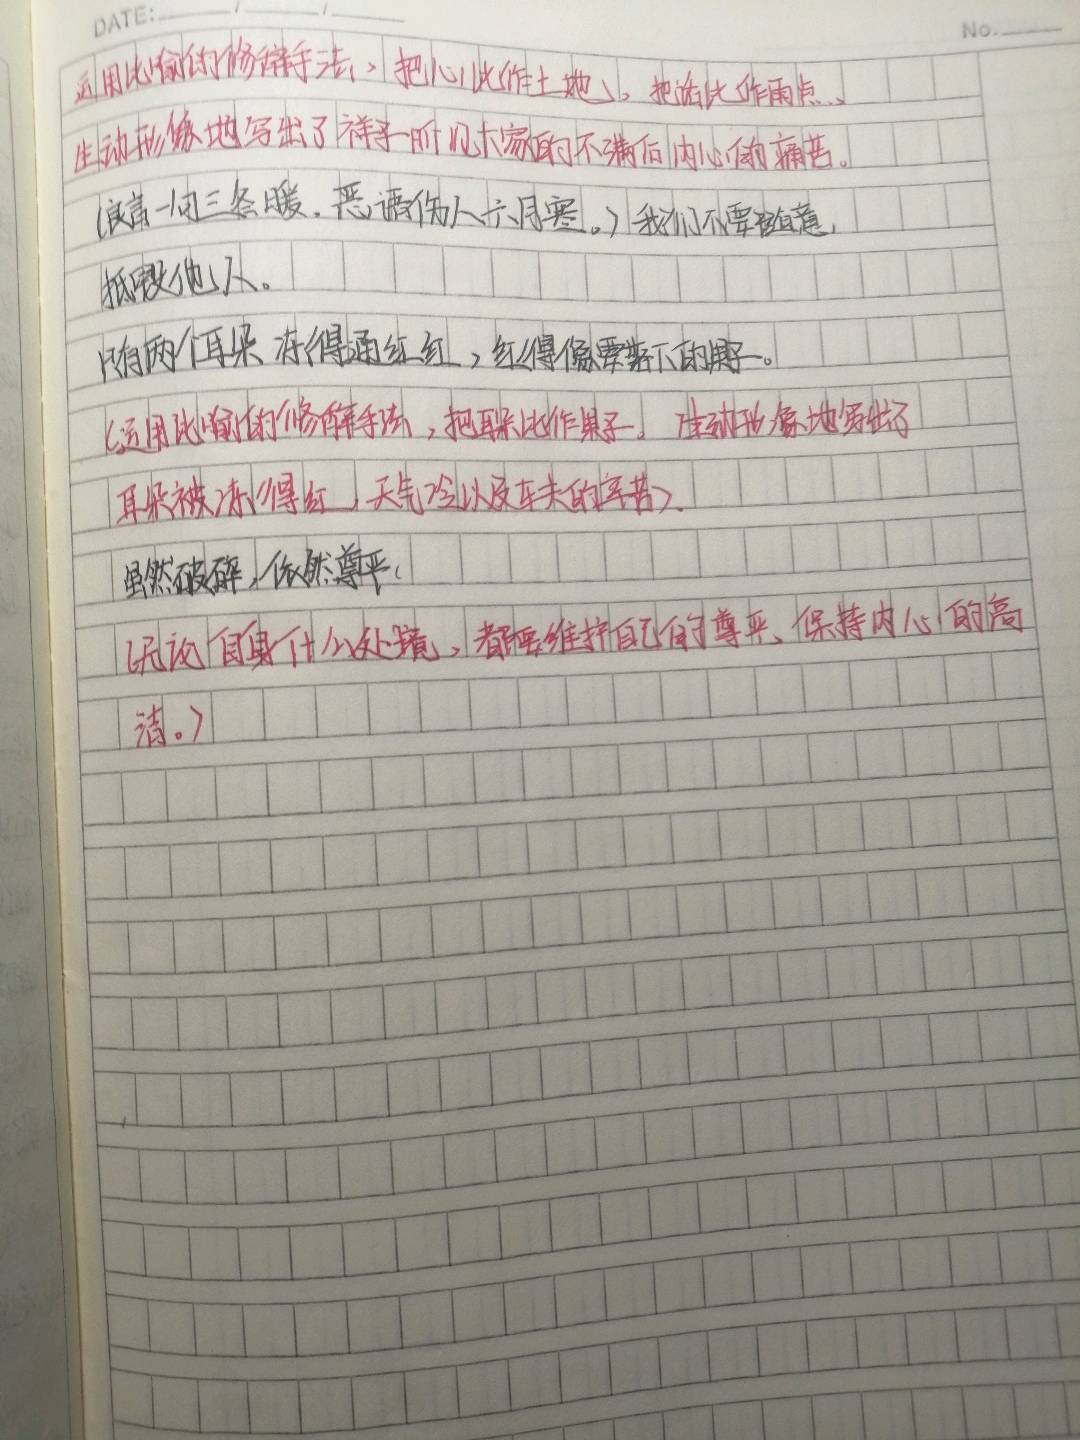 DATE: / /
No.
运用比喻的修辞手法,把心比作土地,把话比作雨点,
生动形像地写出了祥子听见大家的不满后内心的痛苦。
(良言一句三冬暖,恶语伤人六月寒。)我们不要随意
抵毁他人。
只有两个耳朵冻得通红红,红得像要落下的果子。
(运用比喻的修辞手法,把耳朵比作果子,生动形象地写出了
耳朵被冻得红,天气冷以及车夫的辛苦)
虽然破碎,依然尊严,
(无论自身什么处境,都要维护自己的尊严,保持内心的高
洁。)